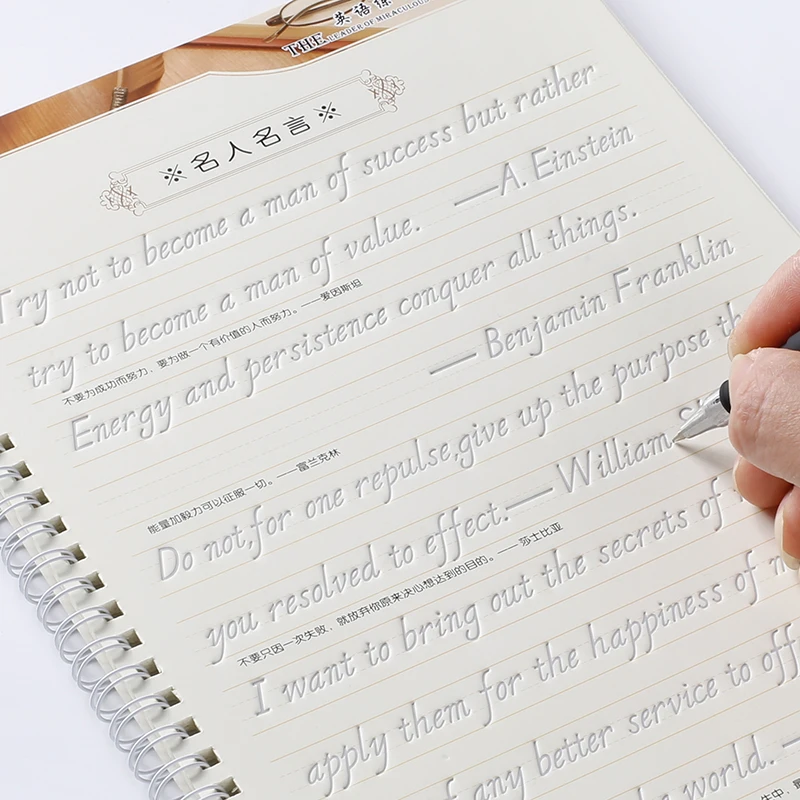 THE 英语练
LEADER OF MIRACULOUS
※名人名言※
Try not to become a man of success but rather
try to become a man of value. —A. Einstein
不要为成功而努力，要为做一个有价值的人而努力。——爱因斯坦
Energy and persistence conquer all things.
— Benjamin Franklin
能量加毅力可以征服一切。——富兰克林
Do not,for one repulse,give up the purpose th
you resolved to effect.—William
不要只因一次失败，就放弃你原来决心想达到的目的。—— 莎士比亚
I want to bring out the secrets of
apply them for the happiness of
any better service to off
world. —